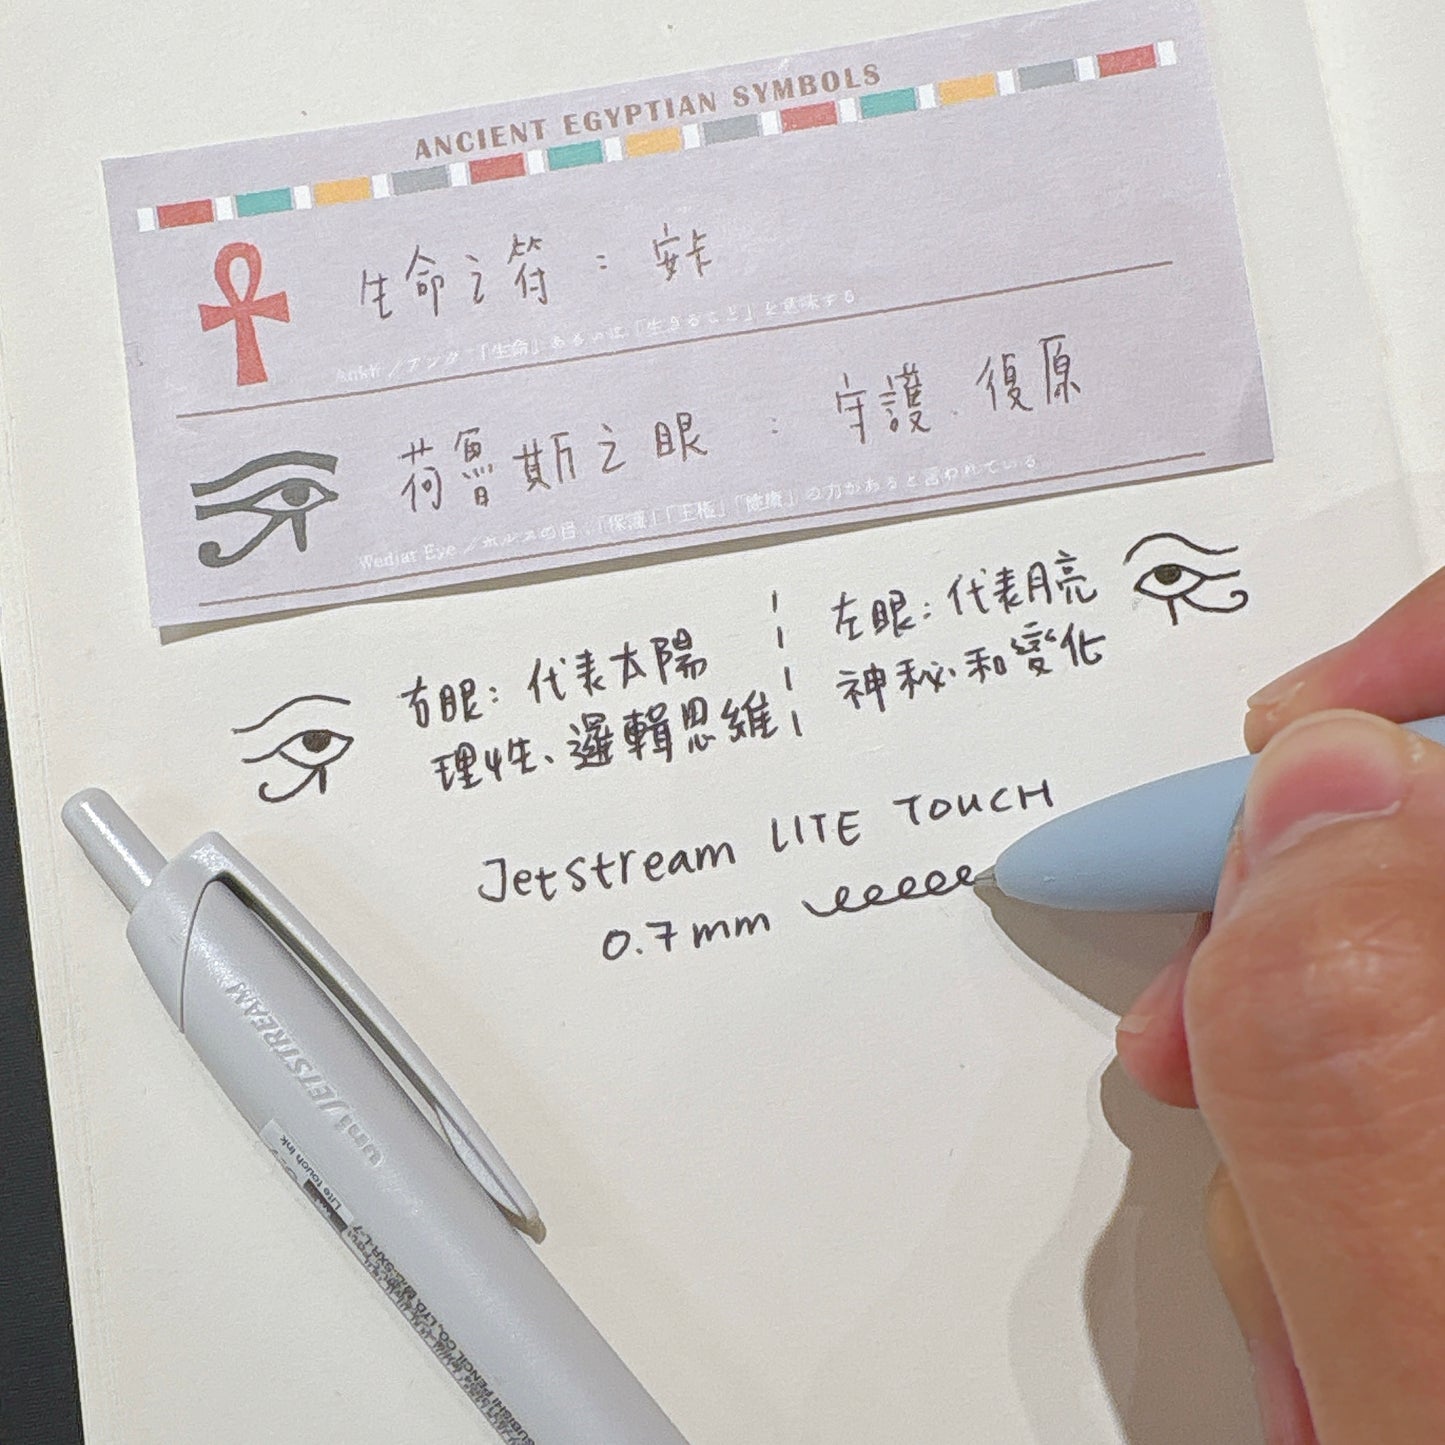 ANCIENT EGYPTIAN SYMBOLS
生命之符：安卡
Ankh／アンク「生命」あるいは「生きること」を意味する
荷魯斯之眼：守護、復原
Wedjat Eye／ホルスの目：「保護」「王権」「健康」の力があると言われている
右眼：代表太陽
理性、邏輯思維
左眼：代表月亮
神秘和變化
Jetstream LITE TOUCH
0.7mm
uni JETSTREAM
Lite touch ink